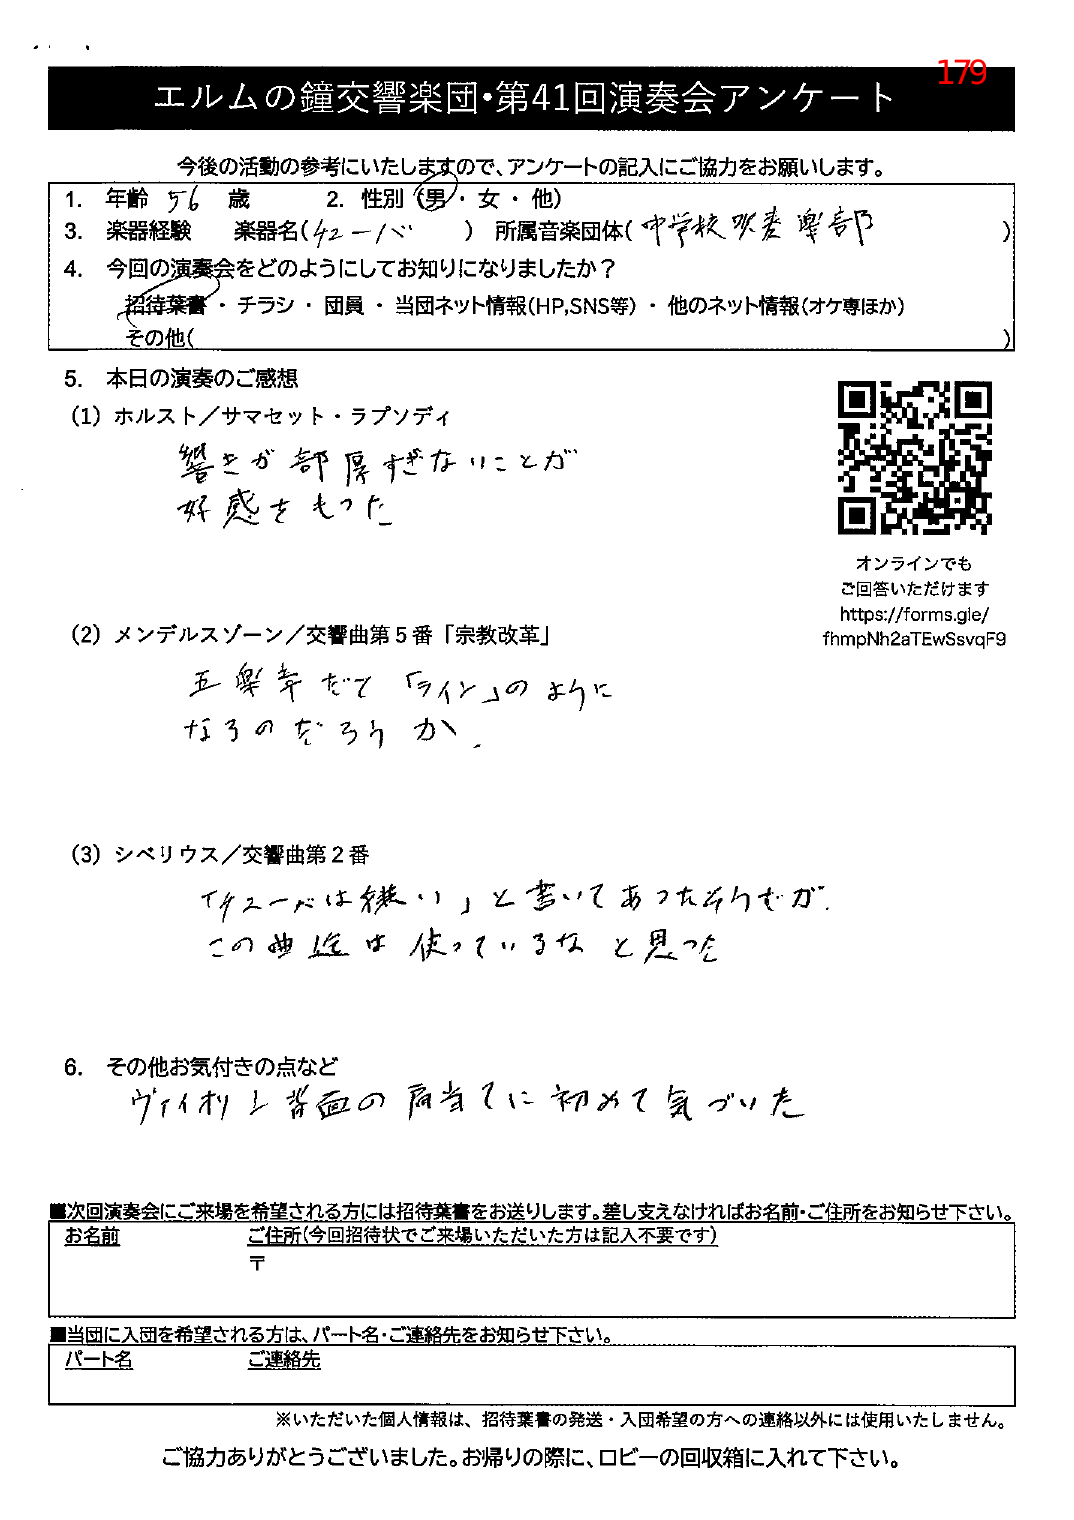 179
エルムの鐘交響楽団・第41回演奏会アンケート
今後の活動の参考にいたしますので、アンケートの記入にご協力をお願いします。
1. 年齢 56 歳 2. 性別 (男・女・他)
3. 楽器経験 楽器名(チューバ ) 所属音楽団体( 中学校吹奏楽部 )
4. 今回の演奏会をどのようにしてお知りになりましたか？
招待葉書 ・ チラシ ・ 団員 ・ 当団ネット情報(HP,SNS等) ・ 他のネット情報(オケ専ほか)
その他( )
5. 本日の演奏のご感想
(1) ホルスト／サマセット・ラプソディ
響きが部厚すぎないことが
好感をもった
オンラインでも
ご回答いただけます
https://forms.gle/
fhmpNh2aTEwSsvqF9
(2) メンデルスゾーン／交響曲第５番「宗教改革」
五楽章だて「ライン」のように
なるのだろうか.
(3) シベリウス／交響曲第２番
「チューバは嫌い」と書いてあったそうだが.
この曲迄は使っているなと思った
6. その他お気付きの点など
ヴァイオリン背面の肩当てに初めて気づいた
■次回演奏会にご来場を希望される方には招待葉書をお送りします。差し支えなければお名前・ご住所をお知らせ下さい。
お名前 ご住所(今回招待状でご来場いただいた方は記入不要です)
〒
■当団に入団を希望される方は、パート名・ご連絡先をお知らせ下さい。
パート名 ご連絡先
※いただいた個人情報は、招待葉書の発送・入団希望の方への連絡以外には使用いたしません。
ご協力ありがとうございました。お帰りの際に、ロビーの回収箱に入れて下さい。